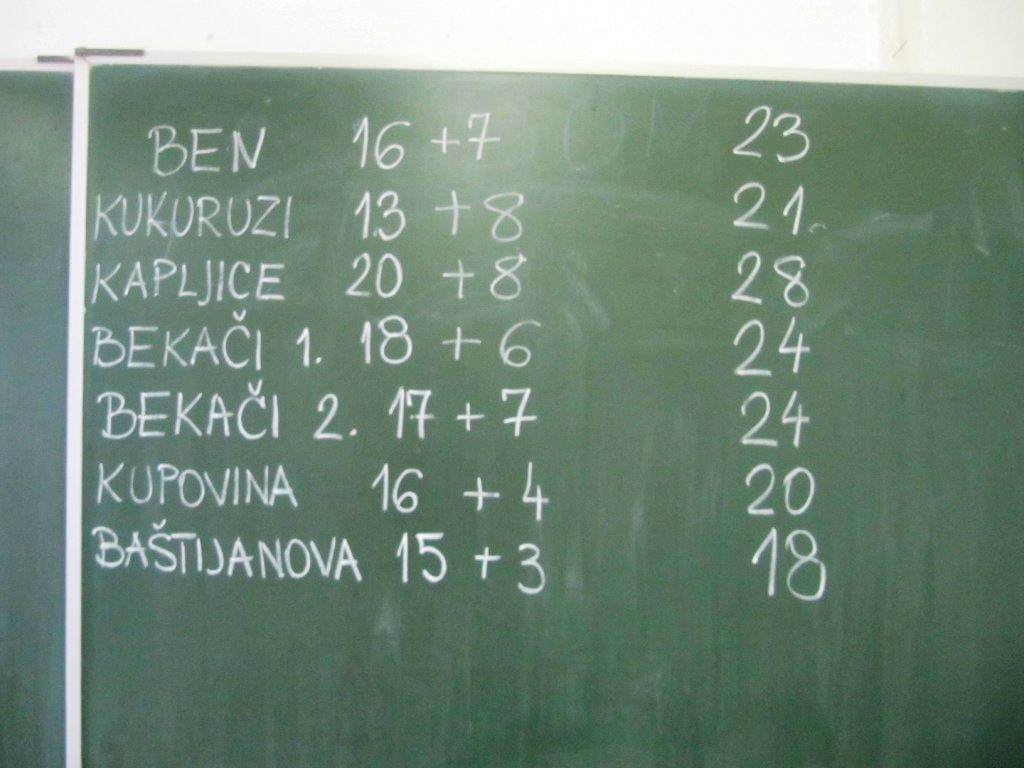 BEN 16 +7 23
KUKURUZI 13 +8 21
KAPLJICE 20 +8 28
BEKAČI 1. 18 + 6 24
BEKAČI 2. 17 + 7 24
KUPOVINA 16 + 4 20
BAŠTIJANOVA 15 + 3 18